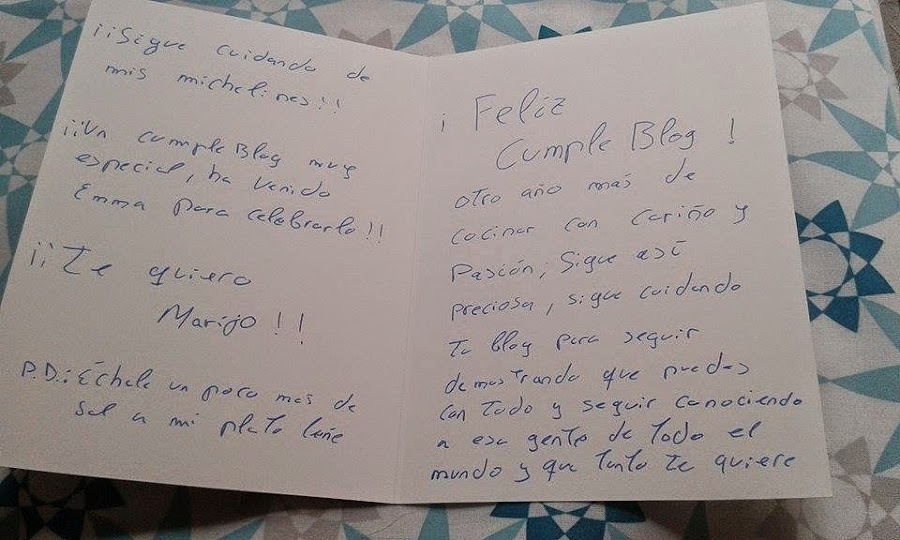 ¡¡Sigue cuidando de
mis michelines!!
¡¡Un cumpleBlog muy
especial, ha venido
Emma para celebrarlo!!
¡¡Te quiero
Marijo!!
P.D.: Échale un poco mas de
sal a mi plato leñe
¡Feliz
CumpleBlog!
otro año mas de
cocinar con cariño y
Pasión, Sigue así
preciosa, sigue cuidando
Tu blog para seguir
demostrando que puedes
con Todo y seguir conociendo
a esa gente de Todo el
mundo y que Tanto Te quiere